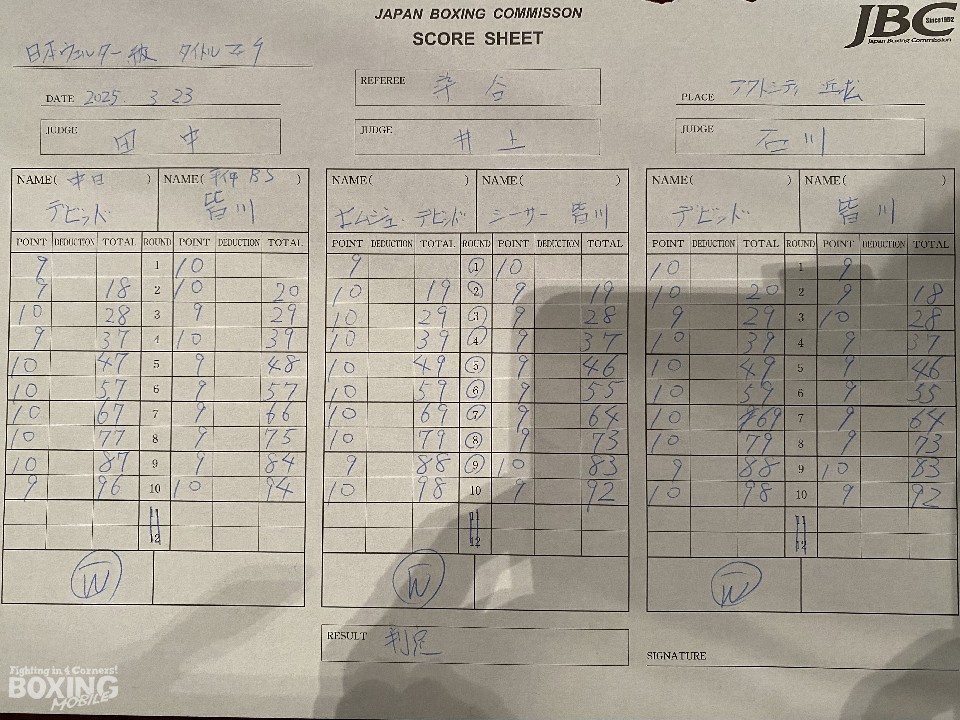 JAPAN BOXING COMMISSON
SCORE SHEET
JBC
Since1952
Japan Boxing Commission
日本ウェルター級 タイトルマッチ
DATE 2025. 3. 23
REFEREE 染谷
PLACE アクトシティ 浜松
JUDGE 田中
JUDGE 井上
JUDGE 石川
NAME( 中日 ) NAME( 平仲BS )
NAME( ) NAME( )
NAME( ) NAME( )
デビッド 皆川
セムジュ・デビッド シーサー 皆川
デビッド 皆川
POINT DEDUCTION TOTAL ROUND POINT DEDUCTION TOTAL
POINT DEDUCTION TOTAL ROUND POINT DEDUCTION TOTAL
POINT DEDUCTION TOTAL ROUND POINT DEDUCTION TOTAL
9 1 10
9 1 10
10 1 9
9 18 2 10 20
10 19 2 9 19
10 20 2 9 18
10 28 3 9 29
10 29 3 9 28
9 29 3 10 28
9 37 4 10 39
10 39 4 9 37
10 39 4 9 37
10 47 5 9 48
10 49 5 9 46
10 49 5 9 46
10 57 6 9 57
10 59 6 9 55
10 59 6 9 55
10 67 7 9 66
10 69 7 9 64
10 69 7 9 64
10 77 8 9 75
10 79 8 9 73
10 79 8 9 73
10 87 9 9 84
9 88 9 10 83
9 88 9 10 83
9 96 10 10 94
10 98 10 9 92
10 98 10 9 92
11
11
11
12
12
12
W
W
W
RESULT 判定
SIGNATURE
Fighting in 4 Corners!
BOXING
MOBILE